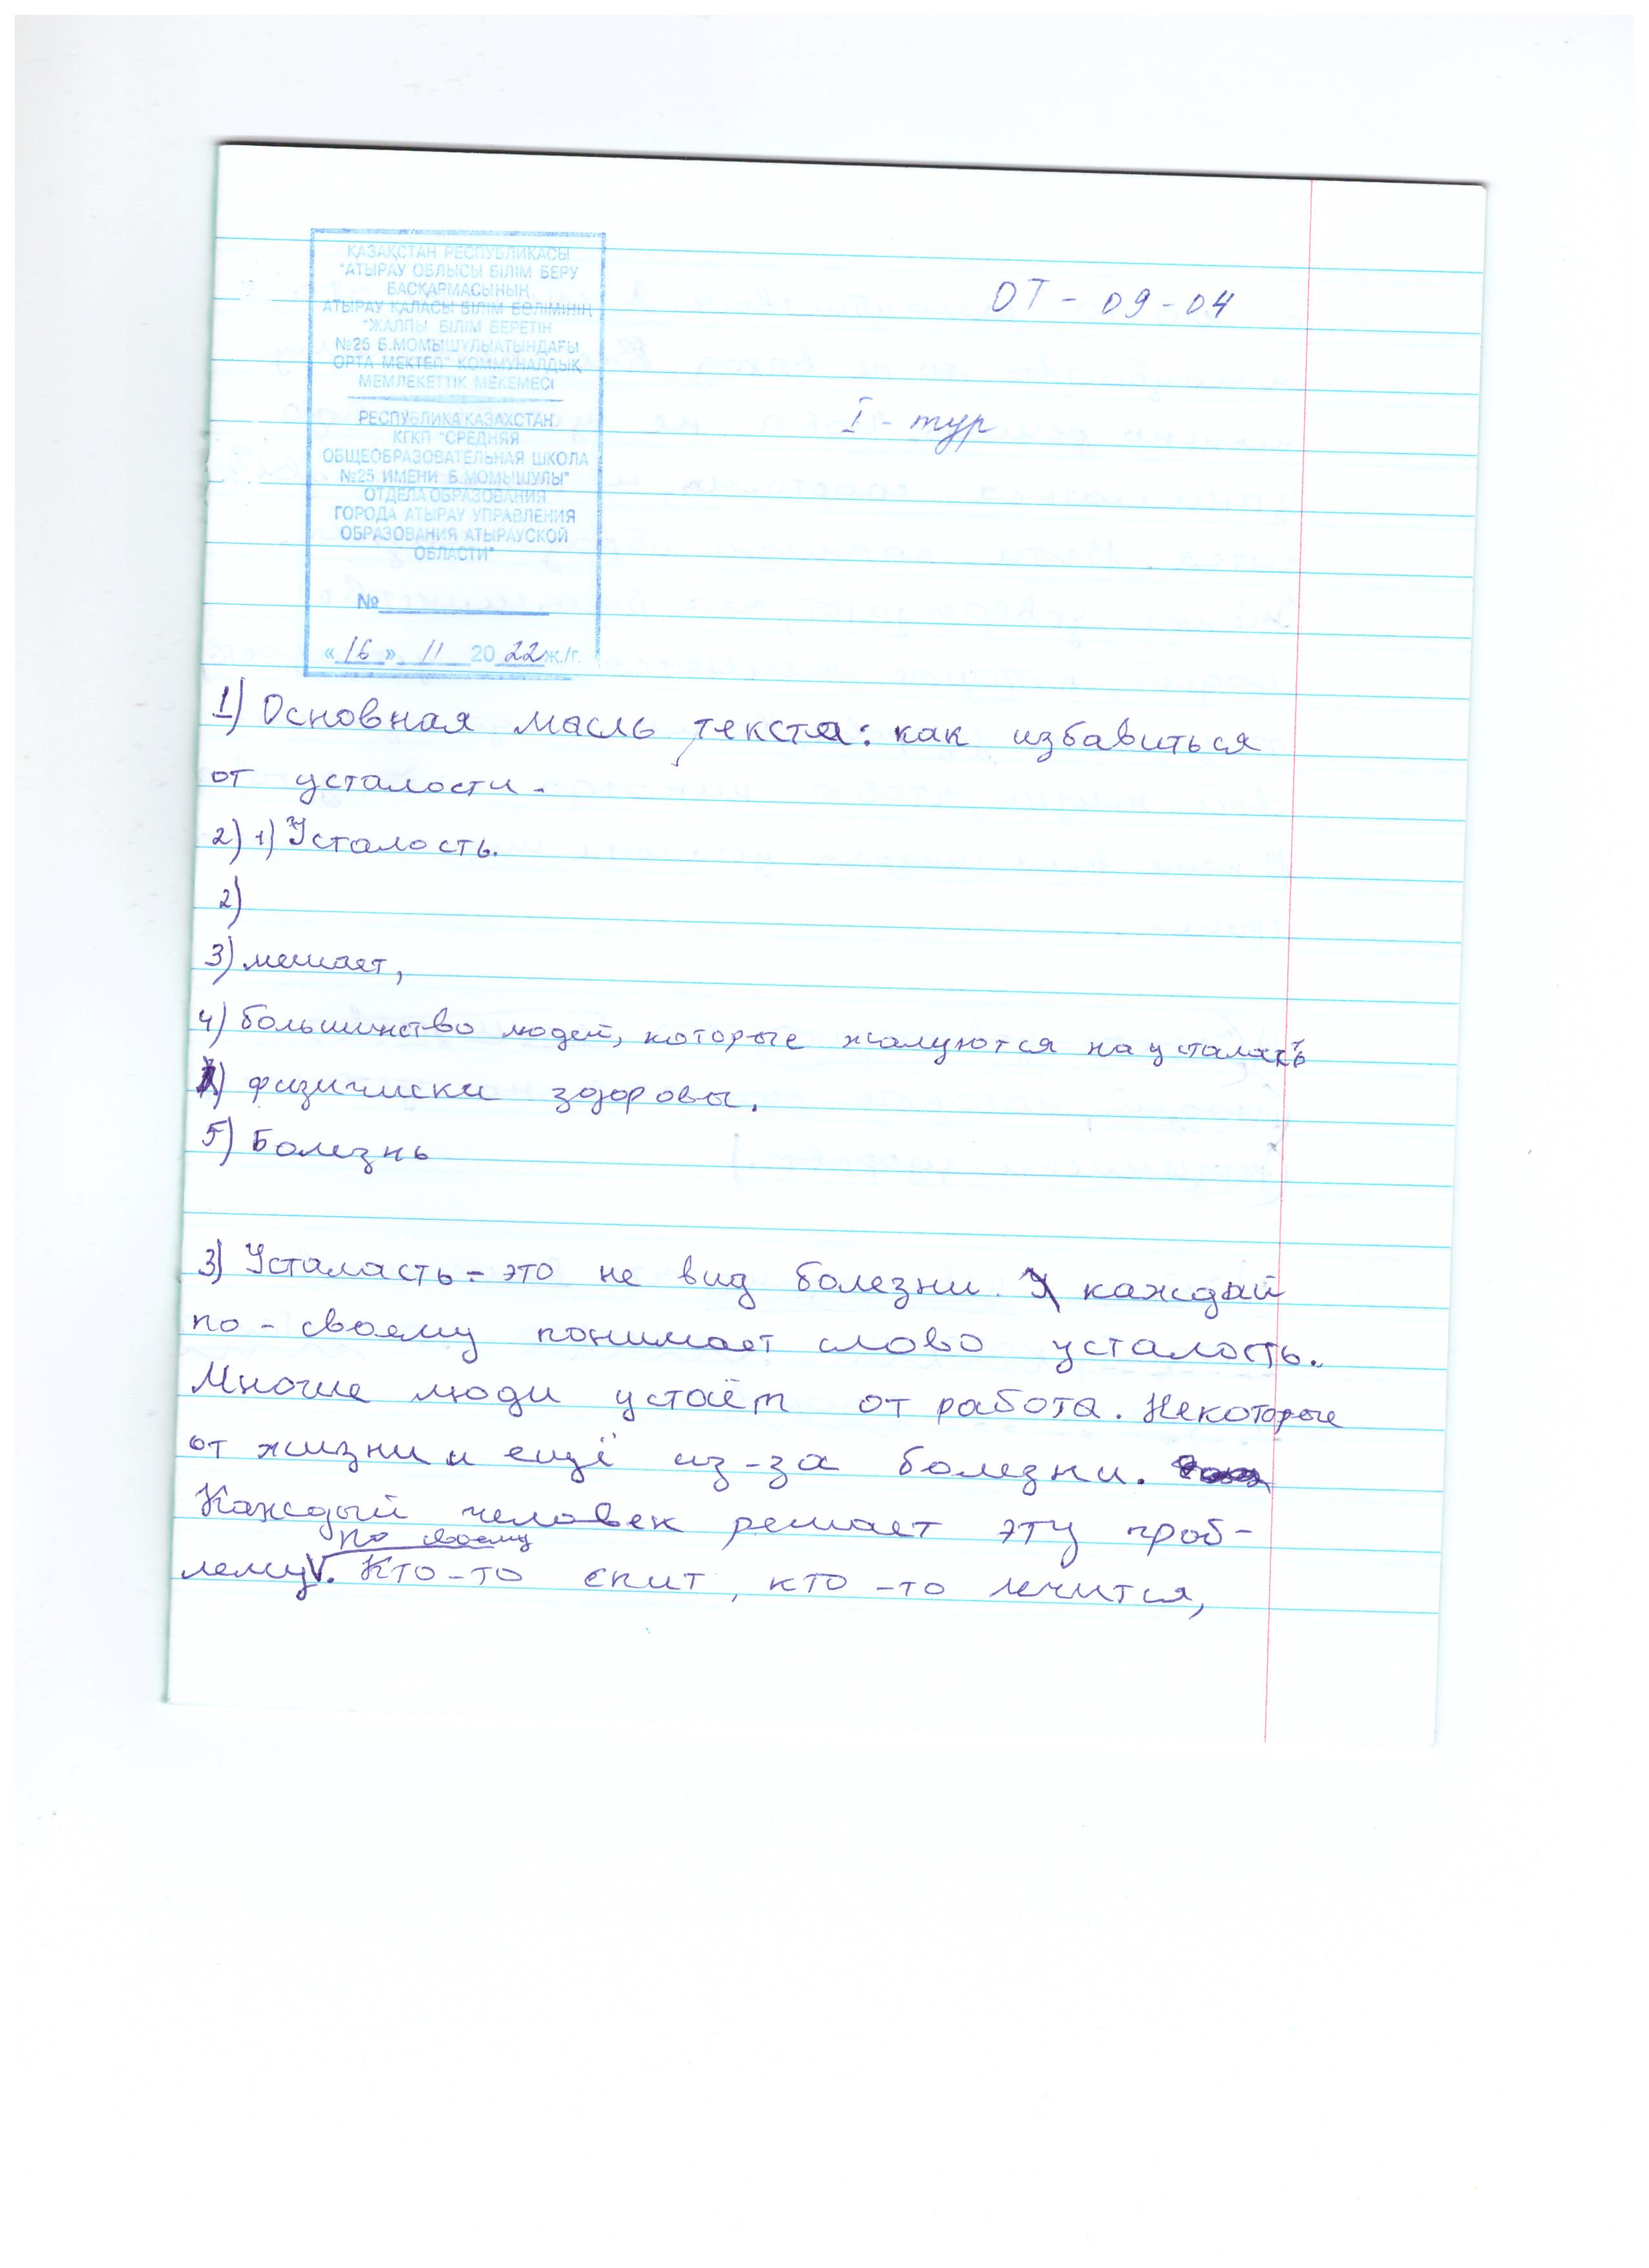 ҚАЗАҚСТАН РЕСПУБЛИКАСЫ
"АТЫРАУ ОБЛЫСЫ БІЛІМ БЕРУ
БАСҚАРМАСЫНЫҢ
АТЫРАУ ҚАЛАСЫ БІЛІМ БӨЛІМІНІҢ
"ЖАЛПЫ БІЛІМ БЕРЕТІН
№25 Б.МОМЫШҰЛЫАТЫНДАҒЫ
ОРТА МЕКТЕП" КОММУНАЛДЫҚ
МЕМЛЕКЕТТІК МЕКЕМЕСІ
РЕСПУБЛИКА КАЗАХСТАН
КГКП "СРЕДНЯЯ
ОБЩЕОБРАЗОВАТЕЛЬНАЯ ШКОЛА
№25 ИМЕНИ Б.МОМЫШУЛЫ"
ОТДЕЛА ОБРАЗОВАНИЯ
ГОРОДА АТЫРАУ УПРАВЛЕНИЯ
ОБРАЗОВАНИЯ АТЫРАУСКОЙ
ОБЛАСТИ"
№
«16» 11 2022ж./г.
ОТ - 09 - 04
I - тур
1) Основная масль текста: как избавиться
от усталости.
2) 1) Усталость.
2)
3) мешает,
4) большинство людей, которые жалуются на усталасть
физичиски здоровы.
5) Болезнь
3) Усталасть - это не вид болезни. каждый
по - своему понимает слово усталость.
Многие люди устаёт от работа. Некоторые
от жизни и ещё из-за болезни.
Каждый человек решает эту проб-
по своему
лему. Кто-то спит, кто-то лечится,